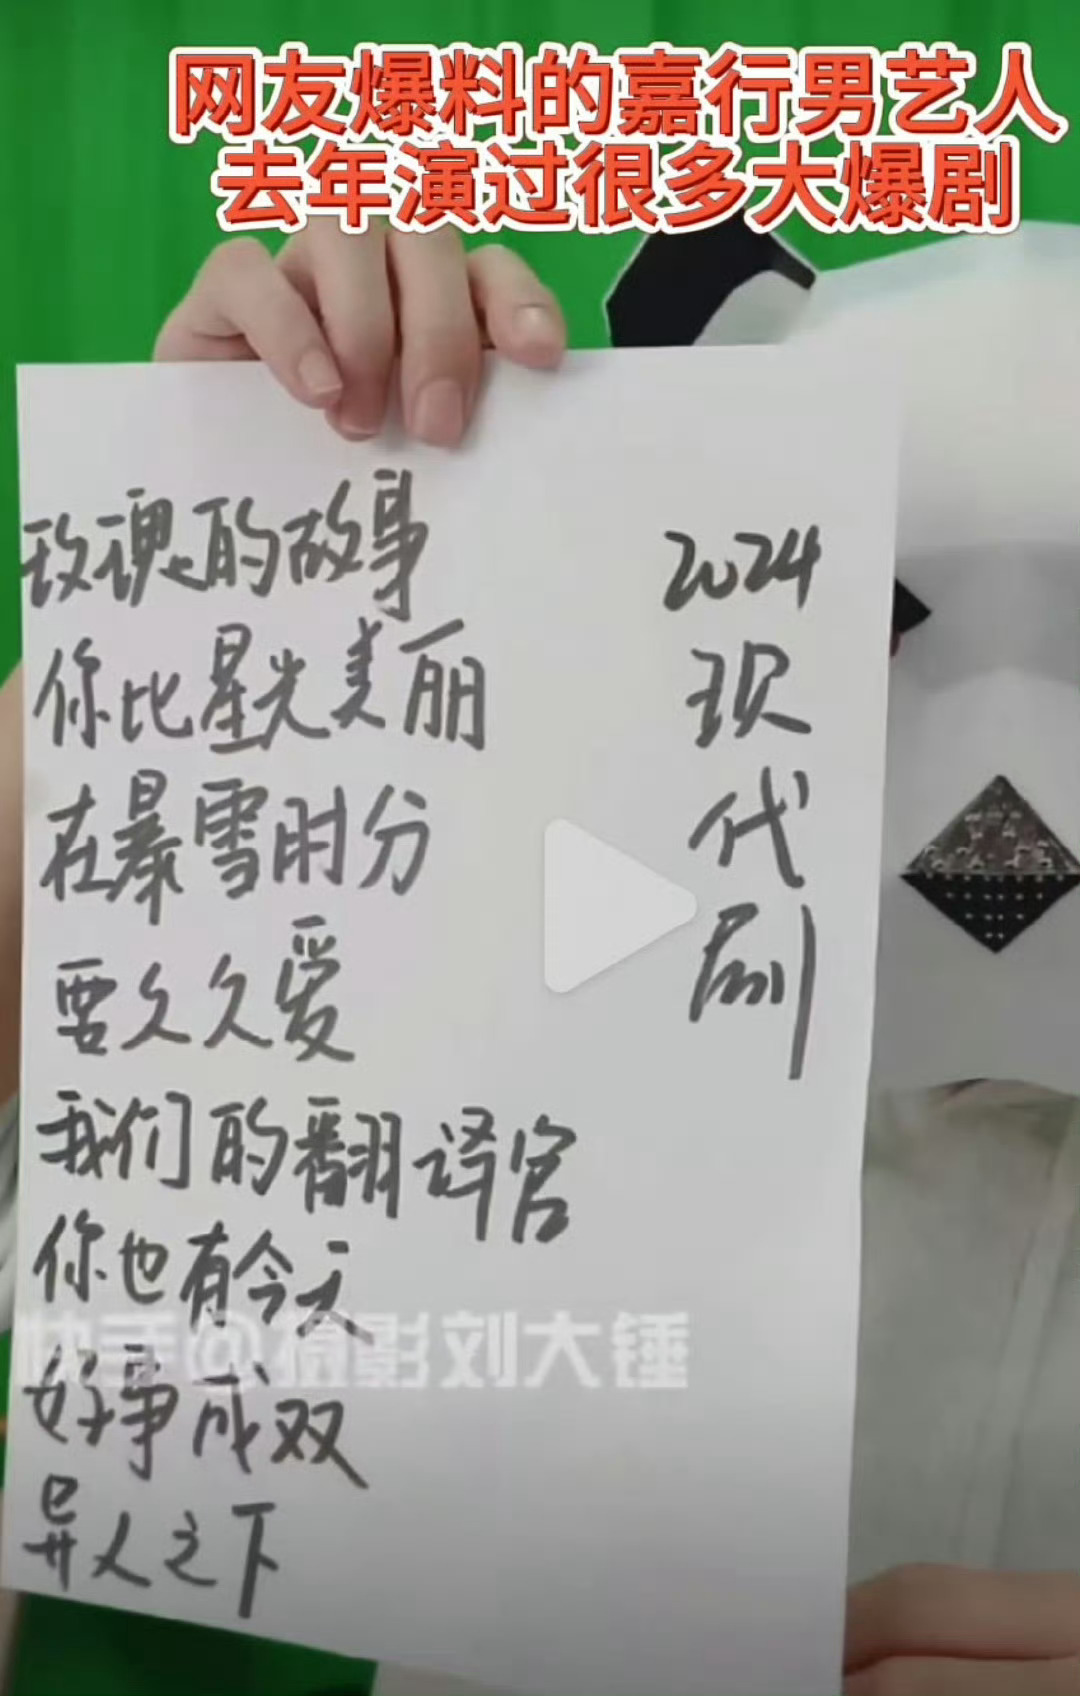 网友爆料的嘉行男艺人
去年演过很多大爆剧
玫瑰的故事
你比星光美丽
在暴雪时分
要久久爱
我们的翻译官
你也有今天
好事成双
异人之下
2024
现
代
剧
快手@摄影刘大锤